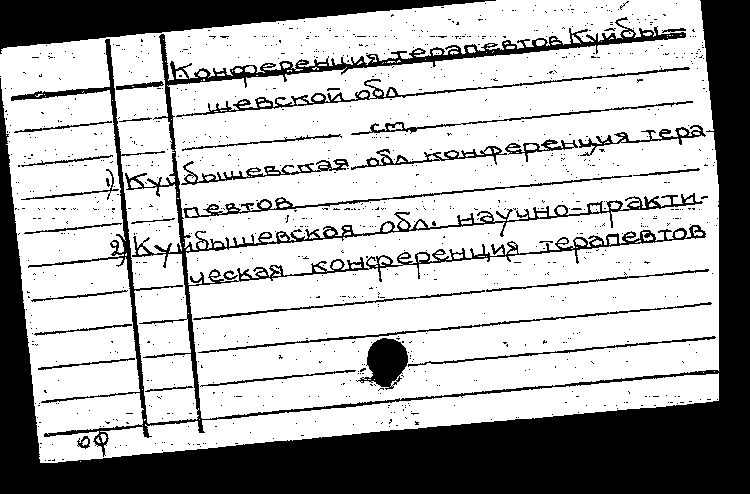 Конференция терапевтов Куйбы-
шевской обл
ст.
1) Куйбышевская обл конференция тера
певтов
2) Куйбышевская обл. научно-практи-
ческая конференция терапевтов
оф